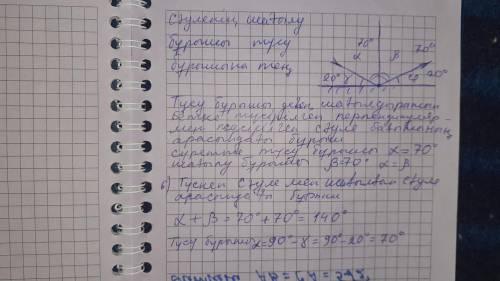 Сәуленің шағылу
бұрышы түсу
бұрышына тең
70° 70°
α β
20° γ φ 20°
Түсу бұрышы деген шағылдыратын
бетке түсірілген перпендикуляр
мен түсірілген сәуле бағытының
арасындағы бұрыш
суретте түсу бұрышы α = 70°
шағылу бұрышы β=70° α=β
б) Түскен сәуле мен шағылған сәуле
арасындағы бұрыш
α + β = 70°+70° = 140°
Түсу бұрышы α=90°-γ = 90°-20° = 70°